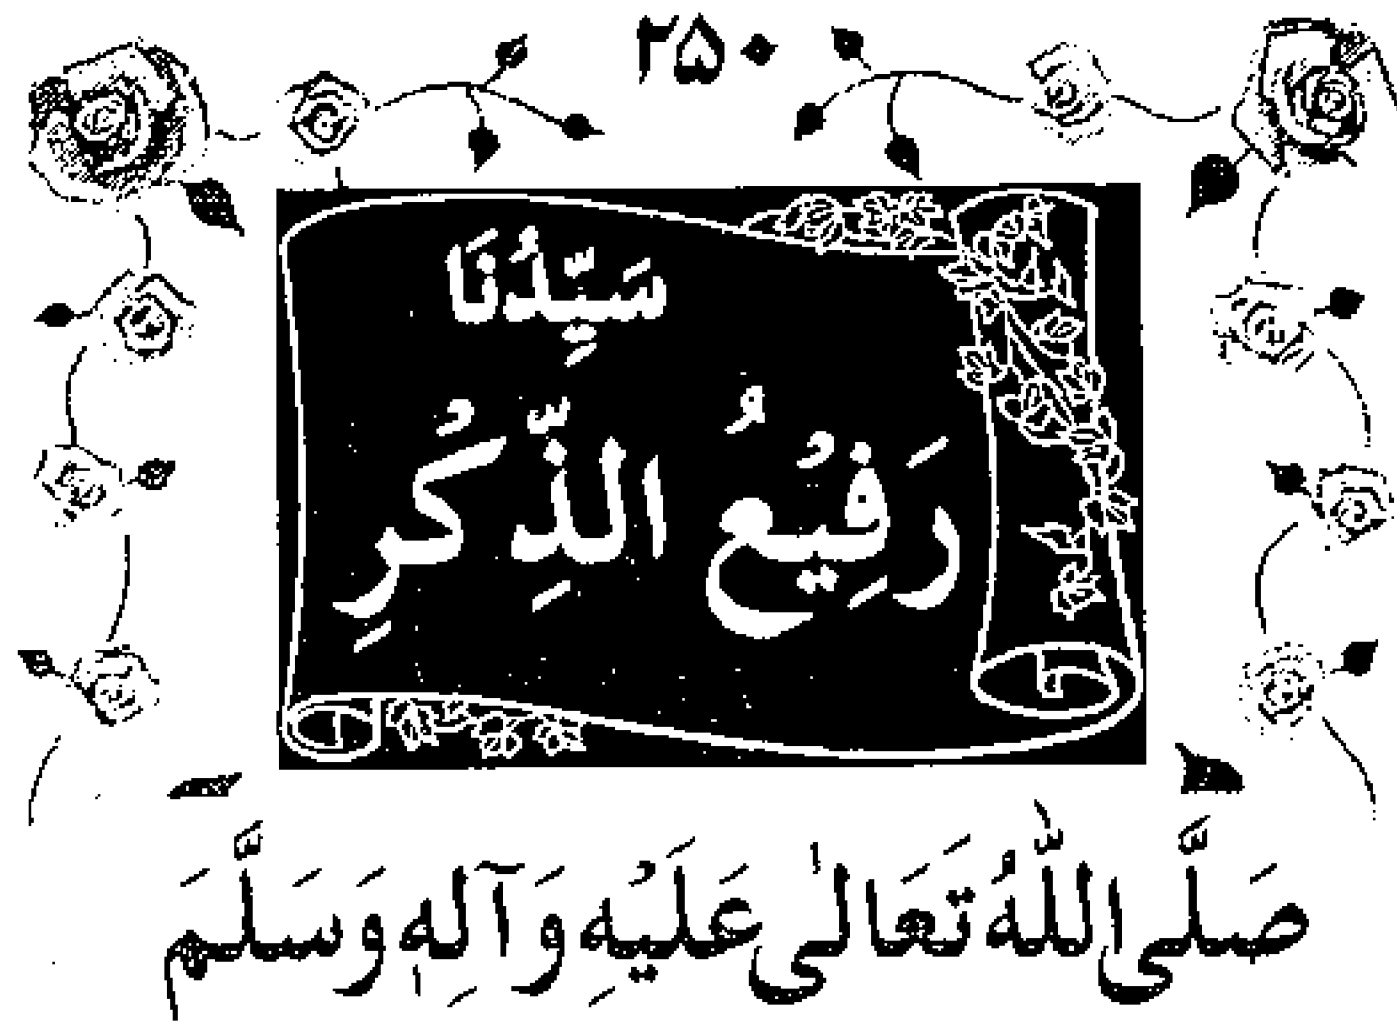 ۲۵۰
سَيِّدُنَا
رَفِيْعُ الذِّكْرِ
صَلَّى اللّٰهُ تَعَالٰى عَلَيْهِ وَآلِهٖ وَسَلَّمَ